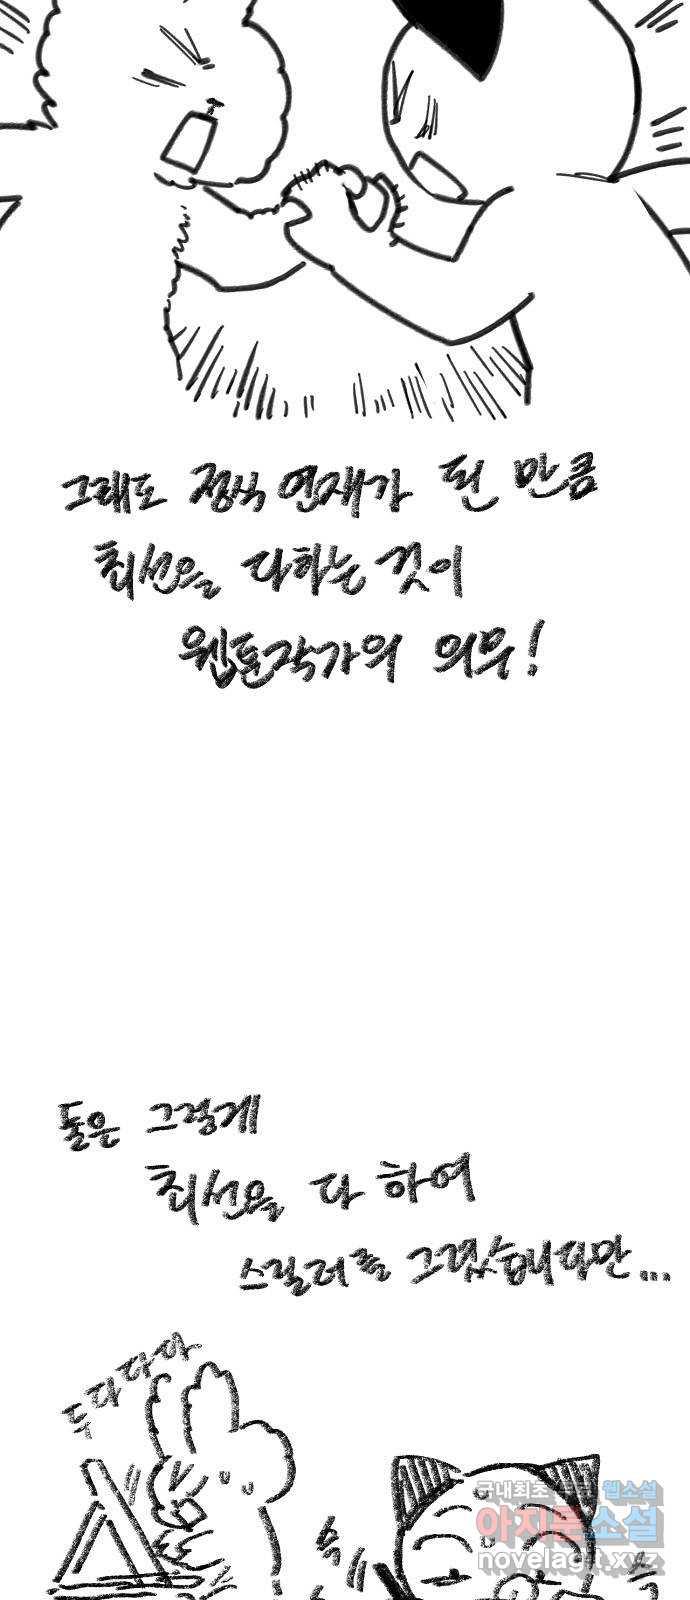 그래도 정식 연재가 된 만큼
최선을 다하는 것이
웹툰작가의 의무!
둘은 그렇게
최선을 다 하여
스릴러를 그렸습니다만...
두다다다
슥
슥
국내최초 무료 웹소설
아지툰소설
novelagit.xyz